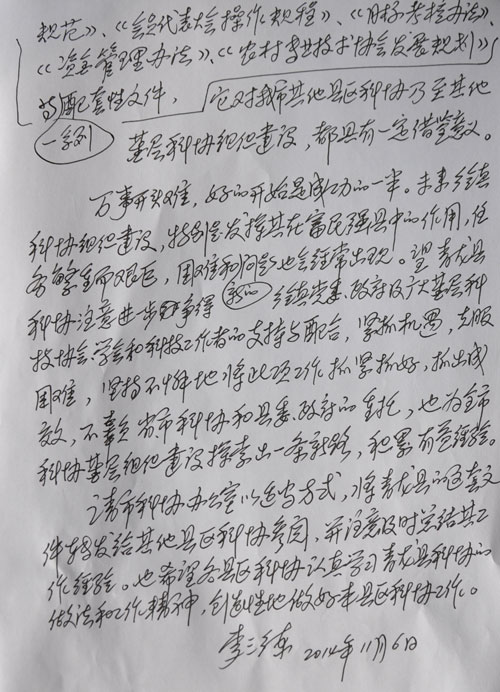 规范》、《会员代表大会操作规程》、《财务考核办法》
《资金管理办法》、《农村专业技术协会发展规划》
等配套性文件，它对我市其他县区科协乃至其他
一系列
基层科协组织建设，都具有一定借鉴意义。
万事开头难，好的开始是成功的一半。未来乡镇
科协组织建设，特别是发挥其在富民强县中的作用，任
务繁重而艰巨，困难和问题也会经常出现。望青龙县
科协注意进一步争得乡镇党委、政府及广大基层科
技协会、学会和科技工作者的支持与配合，紧抓机遇，克服
困难，坚持不懈地将此项工作抓紧抓好，抓出成
效，不辜负省市科协和县委、政府的重托，也为全市
科协基层组织建设探索出一条新路，积累有益经验。
请市科协办公室以适当方式，将青龙县的这套文
件转发给其他县区科协参阅，并注意及时总结其工
作经验。也希望各县区科协认真学习青龙县科协的
做法和工作精神，创造性地做好本县区科协工作。
李 2014年11月6日